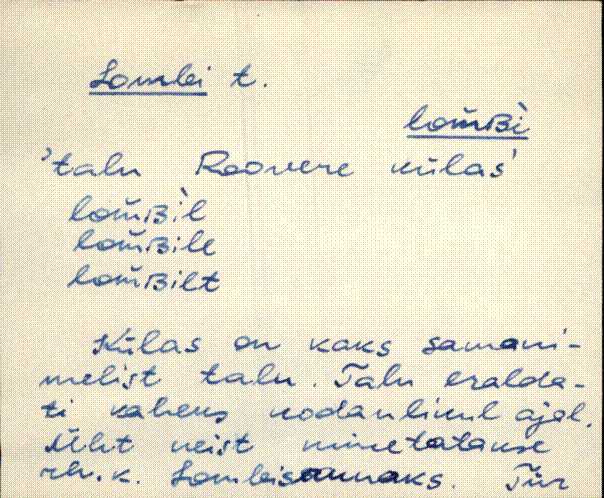 Lombi t.
lom̆ʙì
'talu Roovere külas'
lom̆ʙìl
lom̆ʙile
lom̆ʙilt
Külas on kaks samani-
melist talu. Talu eralda-
ti kaheks kodanlikul ajal.
Üht neist nimetatakse
rh.k. Lombisaunaks. Tür